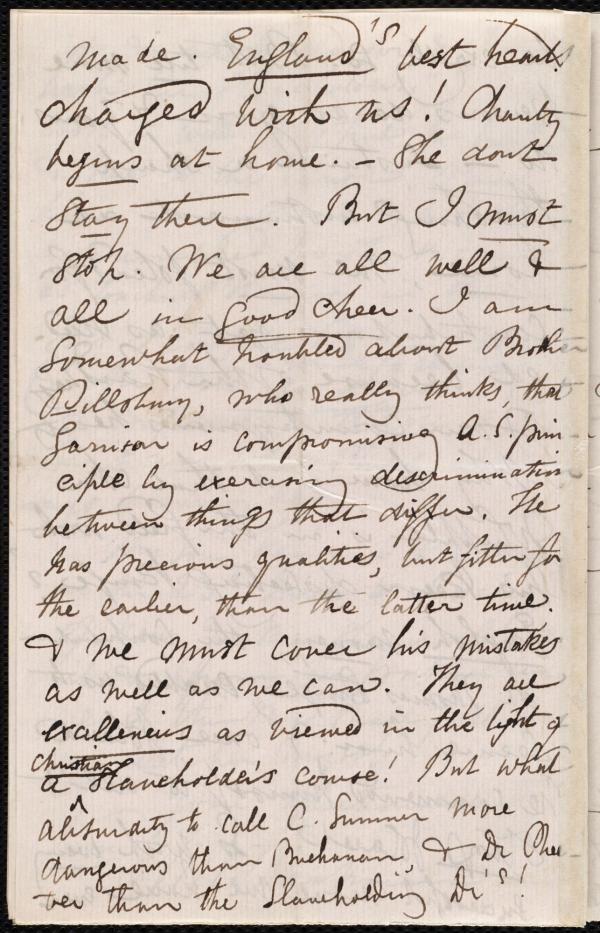 made. England's best hearts
charged with us! Charity
begins at home. - She dont
stay there. But I must
stop. We are all well &
all in good cheer. I am
somewhat troubled about Brother
Pillsbury, who really thinks, that
Garrison is compromising A.S. prin
ciple by exercising descrimination
between things that differ. He
has precious qualities, but fitter for
the earlier, than the latter time.
& we must cover his mistakes
as well as we can. They are
excellencies as viewed in the light of
Christian
a Slaveholder's course! But what
absurdity to call C. Sumner more
dangerous than Buchanan, & Dr Chee
ver than the Slaveholding Dr's!